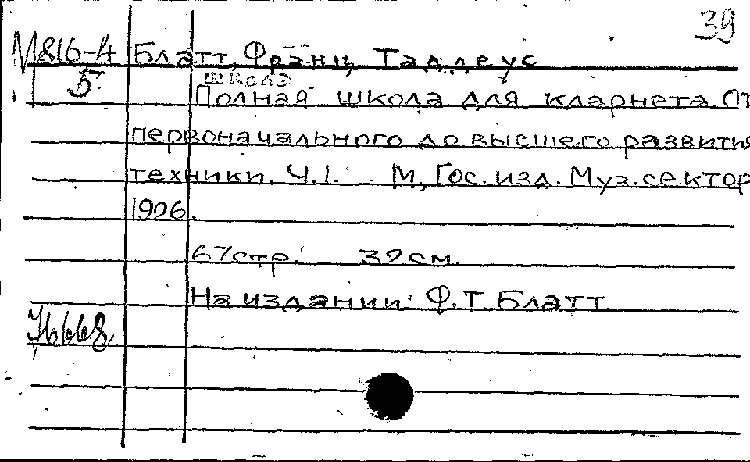 39
М816-4 Блатт, Франц Таддеус
5 школа
Полная школа для кларнета. От
первоначального до высшего развития
техники. Ч.1. М, Гос. изд. Муз. сектор
1926.
67 стр. 32 см.
На издании: Ф.Т. Блатт